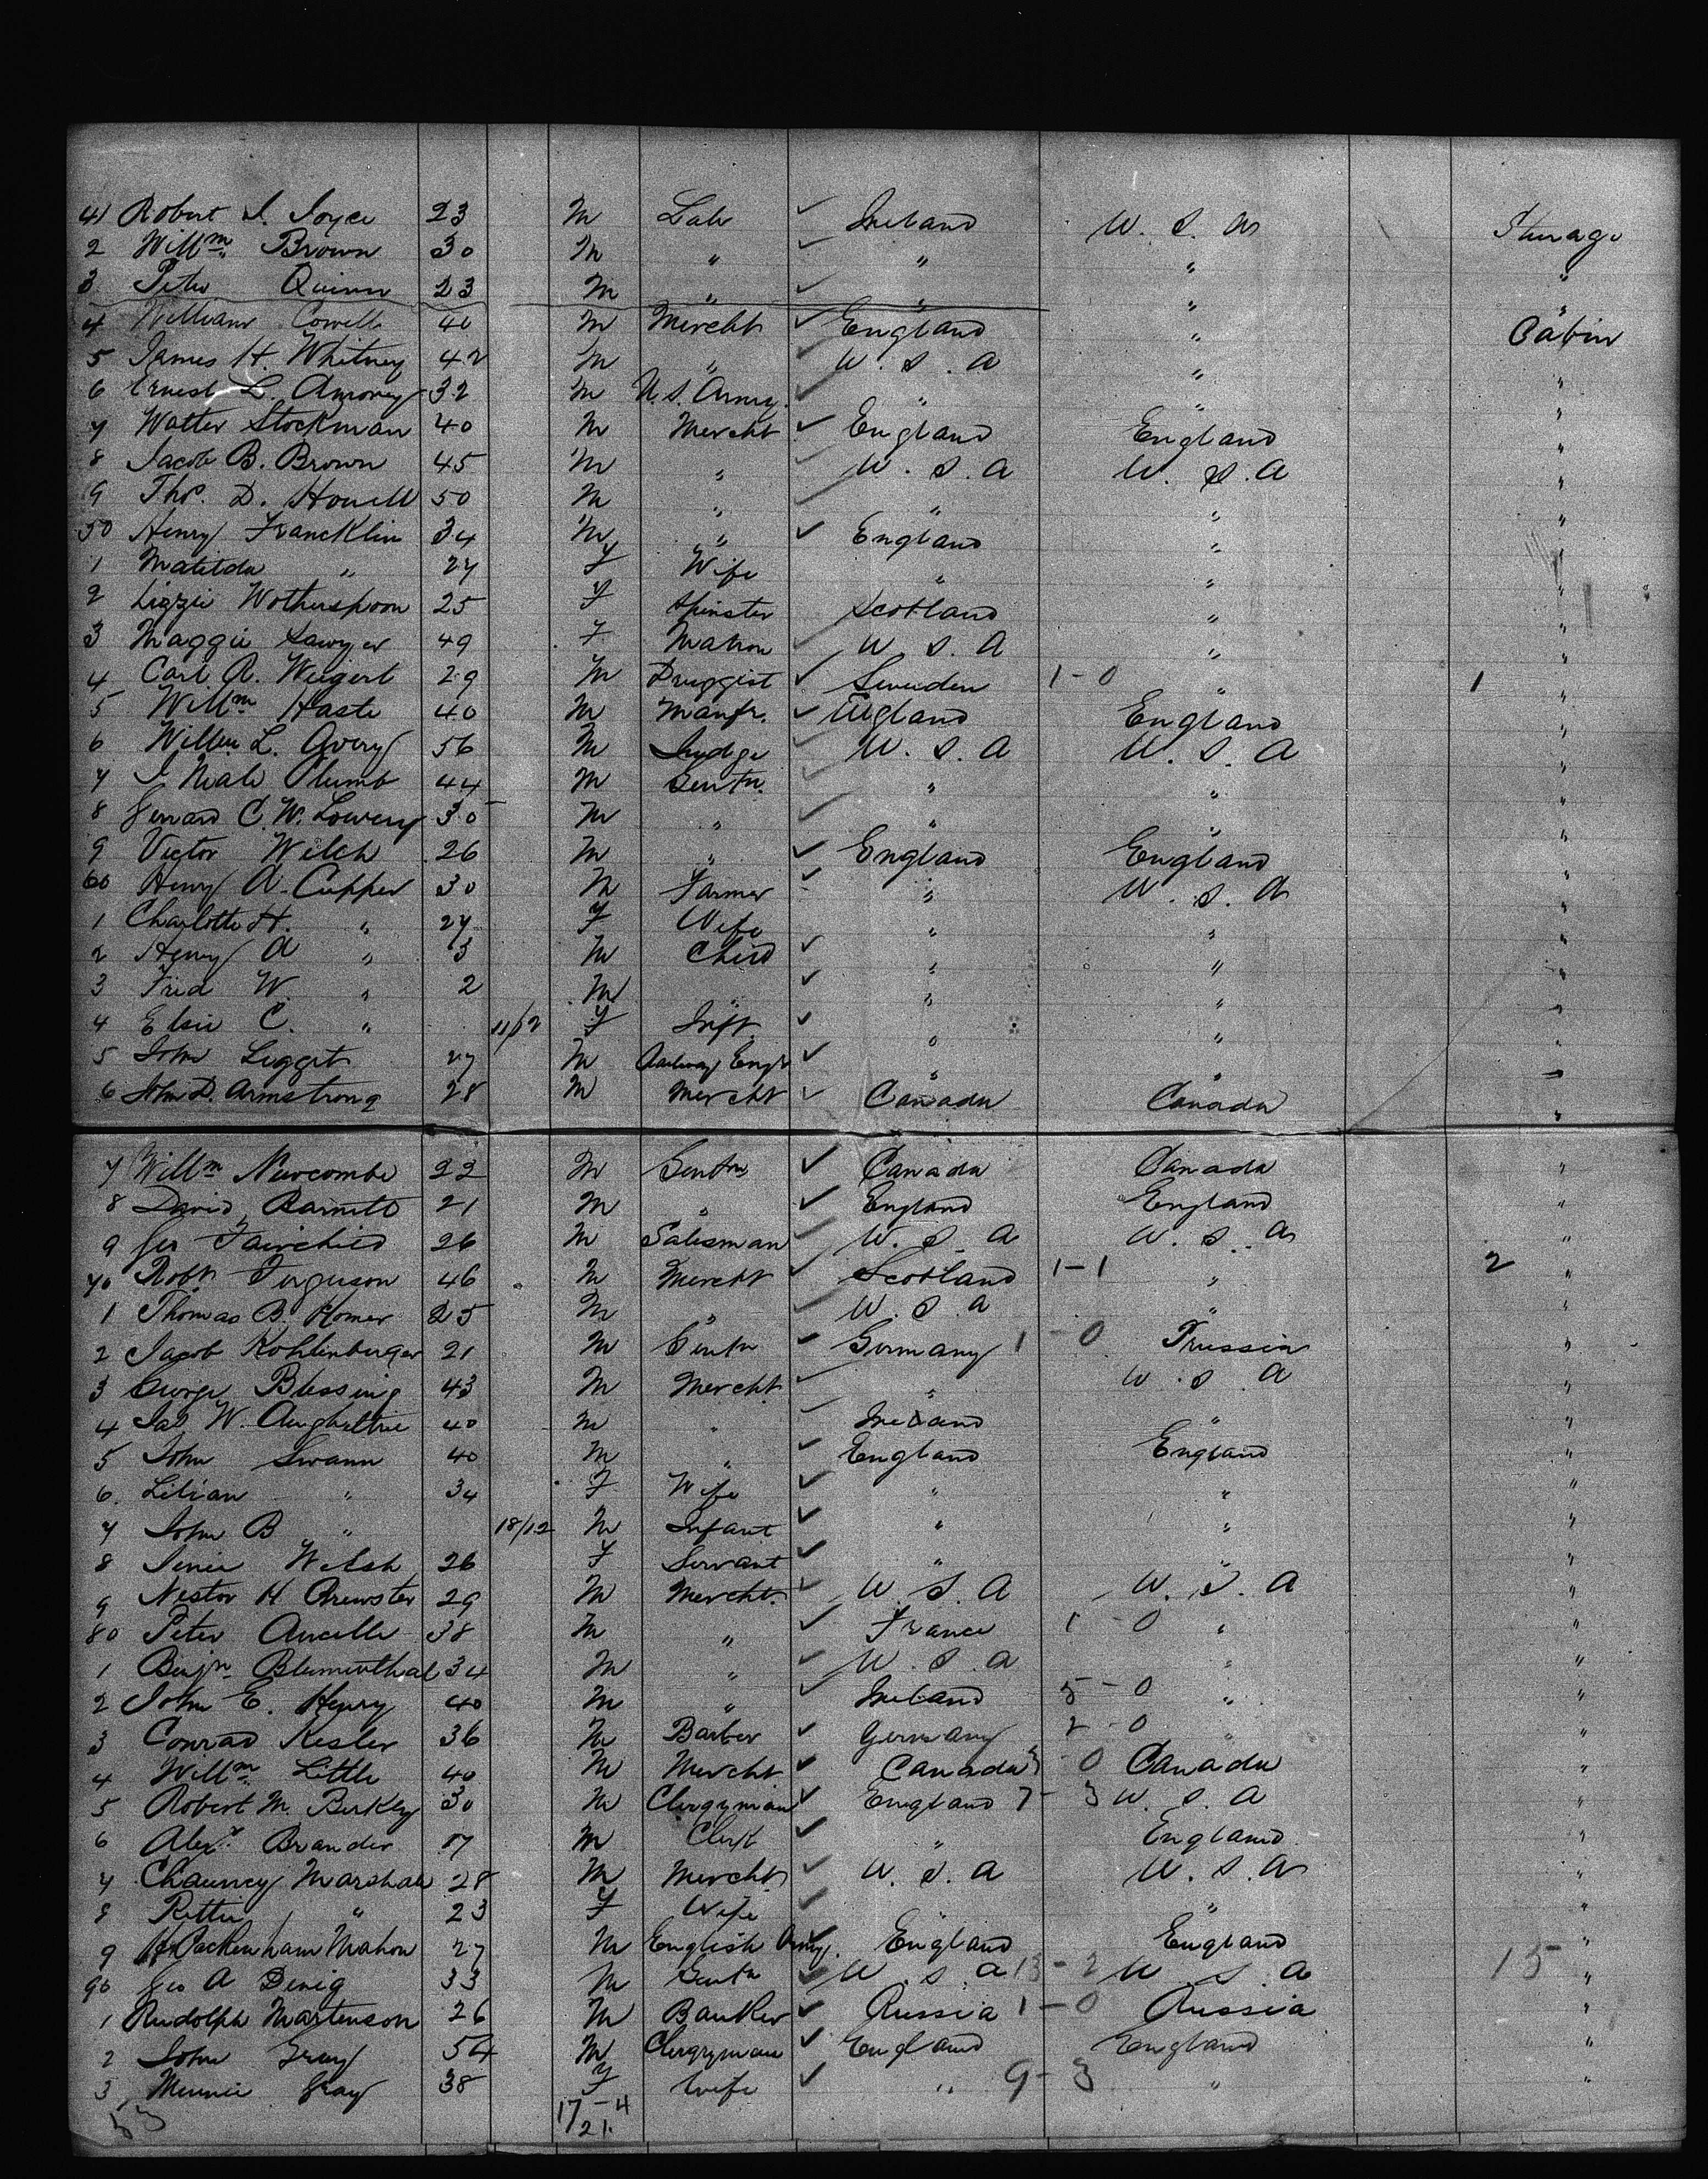 41 Robert J. Joyce 23 M Lab ✓ Ireland U. S. A Steerage
2 Willm Brown 30 M " ✓ " " "
3 Peter Quinn 23 M " ✓ " " "
4 William Cowell 40 M Mercht ✓ England " Cabin
5 James H. Whitney 42 M " ✓ U. S. A " "
6 Ernest L. 32 M U. S. Army. ✓ " " "
7 Walter Stockman 40 M Mercht ✓ England England "
8 Jacob B. Brown 45 M " ✓ U. S. A U. S. A "
9 Tho. D. Howell 50 M " ✓ " " "
50 Henry Francklin 34 M " ✓ England " "
1 Matilda " 27 F Wife " " "
2 Lizzie Wotherspoon 25 F Spinster Scotland " "
3 Maggie Sawyer 49 F Matron ✓ U. S. A " "
4 Carl A. Weigert 29 M Druggist ✓ Sweeden 1-0 " 1 "
5 Willm Haste 40 M Manfr. ✓ England England "
6 L. Avery 56 M Judge ✓ U. S. A U. S. A "
7 J Neale Plumb 44 M Gentn. ✓ " " "
8 C. W. Lowery 30 M " ✓ " " "
9 Victor Welch 26 M " ✓ England England "
60 Henry A. Cupper 30 M Farmer ✓ " U. S. A "
1 Charlotte H. " 27 F Wife " " "
2 Henry A " 3 M Child ✓ " " "
3 Fred W. " 2 M " ✓ " " "
4 Elsie C. " 11/12 F Inft. ✓ " " "
5 John Leggat 27 M Railway Engr ✓ " " "
6 John D. Armstrong 28 M Mercht ✓ Canada Canada "
7 Willm Newcombe 22 M Gentn ✓ Canada Canada "
8 David Barnett 21 M " ✓ England England "
9 Geo Fairchild 26 M Salesman ✓ U. S. A U. S. A "
70 Robt Ferguson 46 M Mercht ✓ Scotland 1-1 " 2 "
1 Thomas B. Homer 25 M " ✓ U. S. A " "
2 Jacob Kohlenberger 21 M Gentn ✓ Germany 1-0 Prussia "
3 George Blessing 43 M Mercht ✓ " U. S. A "
4 Jas W. 40 M " ✓ Ireland " "
5 John Swann 40 M " ✓ England England "
6. Lilian " 34 F Wife ✓ " " "
7 John B " 18/12 M Infant ✓ " " "
8 Welsh 26 F Servant ✓ " " "
9 Nestor H Brewster 29 M Mercht. ✓ U. S. A U. S. A "
80 Peter Aucelle 38 M " ✓ France 1-0 "
1 Benjn Blumenthal 34 M " ✓ U. S. A " "
2 John E. Henry 40 M " ✓ Ireland 5-0 " "
3 Conrad Kesler 36 M Barber ✓ Germany 2-0 " "
4 Willm Little 40 M Mercht ✓ Canada 3-0 Canada "
5 Robert M. Berkley 30 M Clergyman ✓ England 7-3 U. S. A "
6 Alexr Brander 17 M Clerk ✓ " England "
7 Chauncey Marshall 28 M Mercht ✓ U. S. A U. S. A "
8 Rettie " 23 F Wife ✓ " " "
9 H Packenham Mahon 27 M English Army. ✓ England England "
90 Geo A Denig 33 M Gentn ✓ U. S. A 13-2 U. S. A 15 "
1 Rudolph Martenson 26 M Banker ✓ Russia 1-0 Russia "
2 John Gray 54 M Clergyman ✓ England England "
3 Minnie Gray 38 F Wife ✓ " 9-3 " "
53 17-4
21.